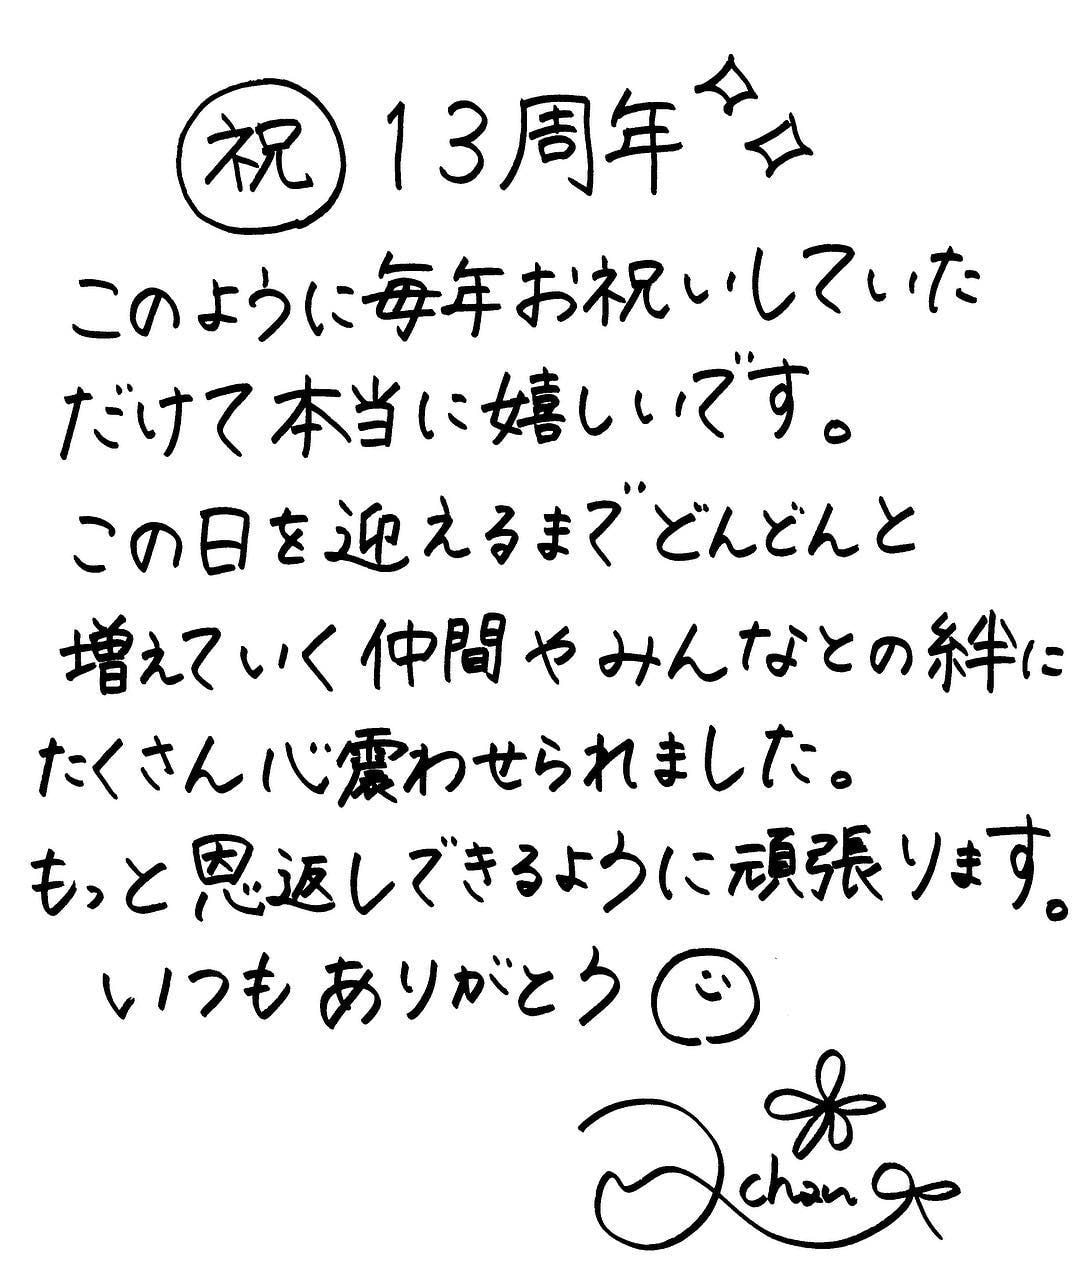 祝 13周年
このように毎年お祝いしていた
だけて本当に嬉しいです。
この日を迎えるまでどんどんと
増えていく仲間やみんなとの絆に
たくさん心震わせられました。
もっと恩返しできるように頑張ります。
いつもありがとう
chan